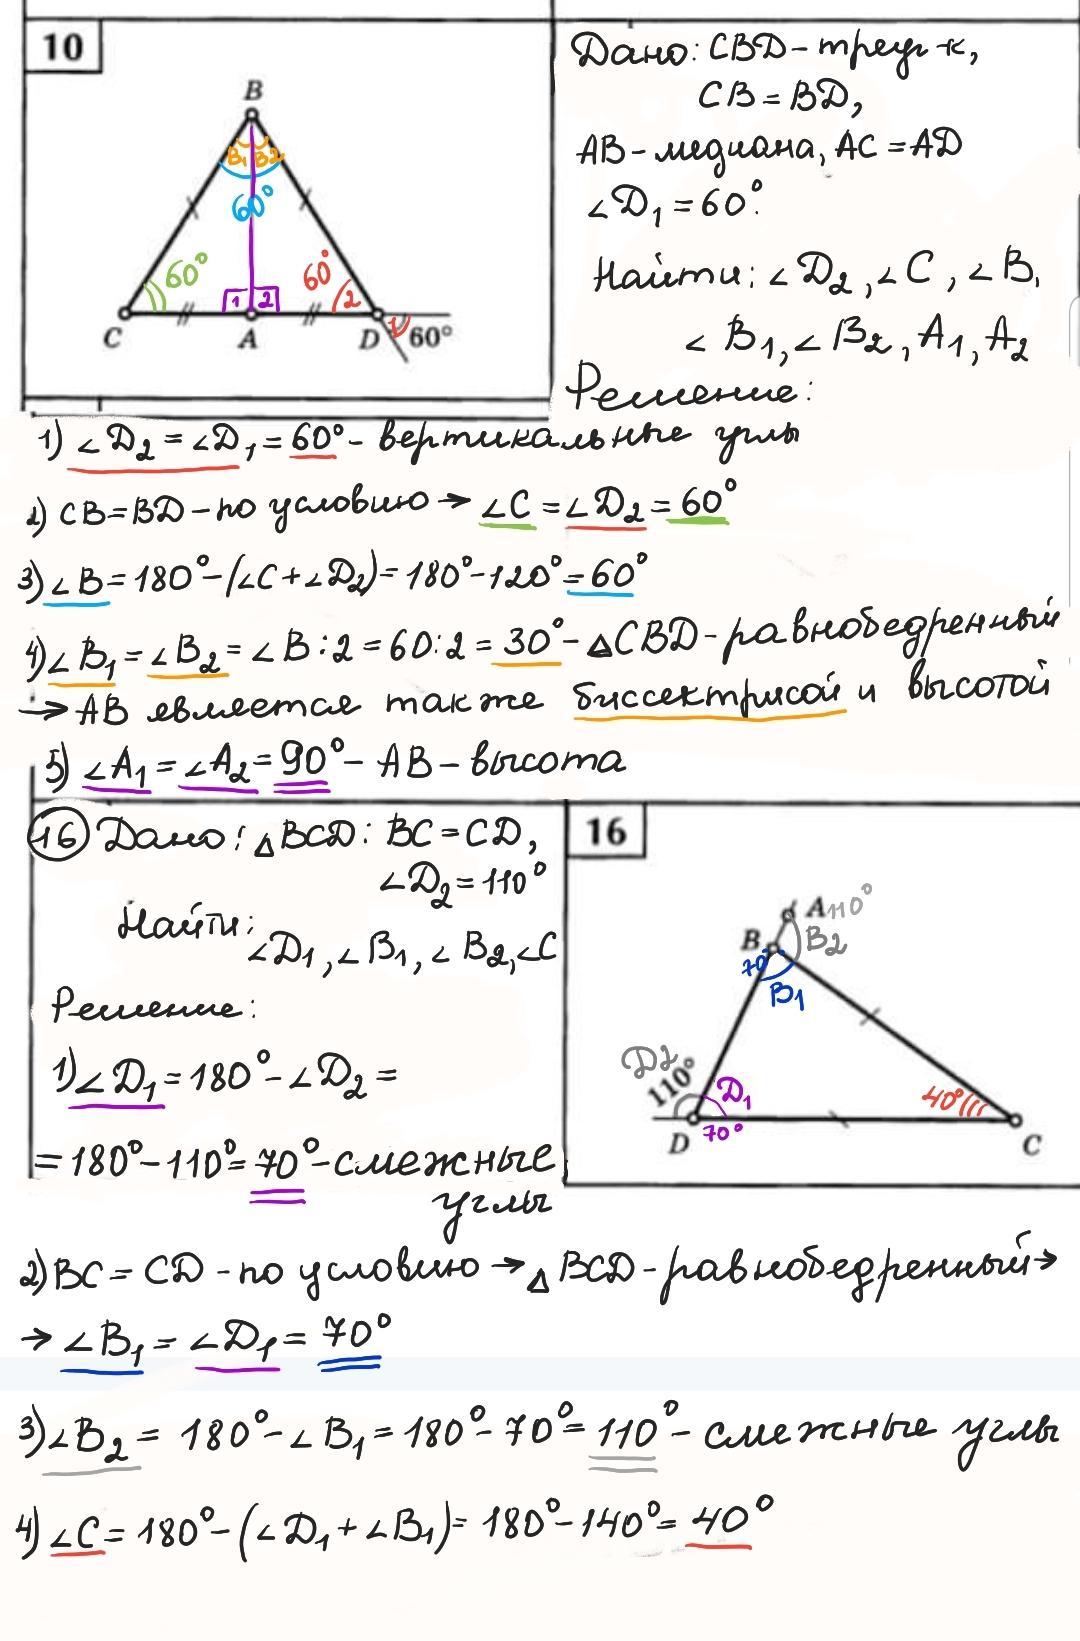 10
B
B₁ B₂
60°
60° 60°
1 2 2
C A D 1 60°
Дано: CBD - треуг-к,
CB = BD,
AB - медиана, AC = AD
∠D₁ = 60°.
Найти: ∠D₂, ∠C, ∠B,
∠B₁, ∠B₂, A₁, A₂
Решение:
1) ∠D₂ = ∠D₁ = 60° - вертикальные углы
2) CB = BD - по условию → ∠C = ∠D₂ = 60°
3) ∠B = 180° - (∠C + ∠D₂) = 180° - 120° = 60°
4) ∠B₁ = ∠B₂ = ∠B : 2 = 60 : 2 = 30° - △CBD - равнобедренный
→ AB является также биссектрисой и высотой
5) ∠A₁ = ∠A₂ = 90° - AB - высота
16 Дано: △BCD: BC = CD,
∠D₂ = 110°
Найти:
∠D₁, ∠B₁, ∠B₂, ∠C
Решение:
1) ∠D₁ = 180° - ∠D₂ =
= 180° - 110° = 70° - смежные
углы
16
A 110°
B B₂
70°
B₁
D2
110° D₁ 40°
D 70° C
2) BC = CD - по условию → △BCD - равнобедренный →
→ ∠B₁ = ∠D₁ = 70°
3) ∠B₂ = 180° - ∠B₁ = 180° - 70° = 110° - смежные углы
4) ∠C = 180° - (∠D₁ + ∠B₁) = 180° - 140° = 40°